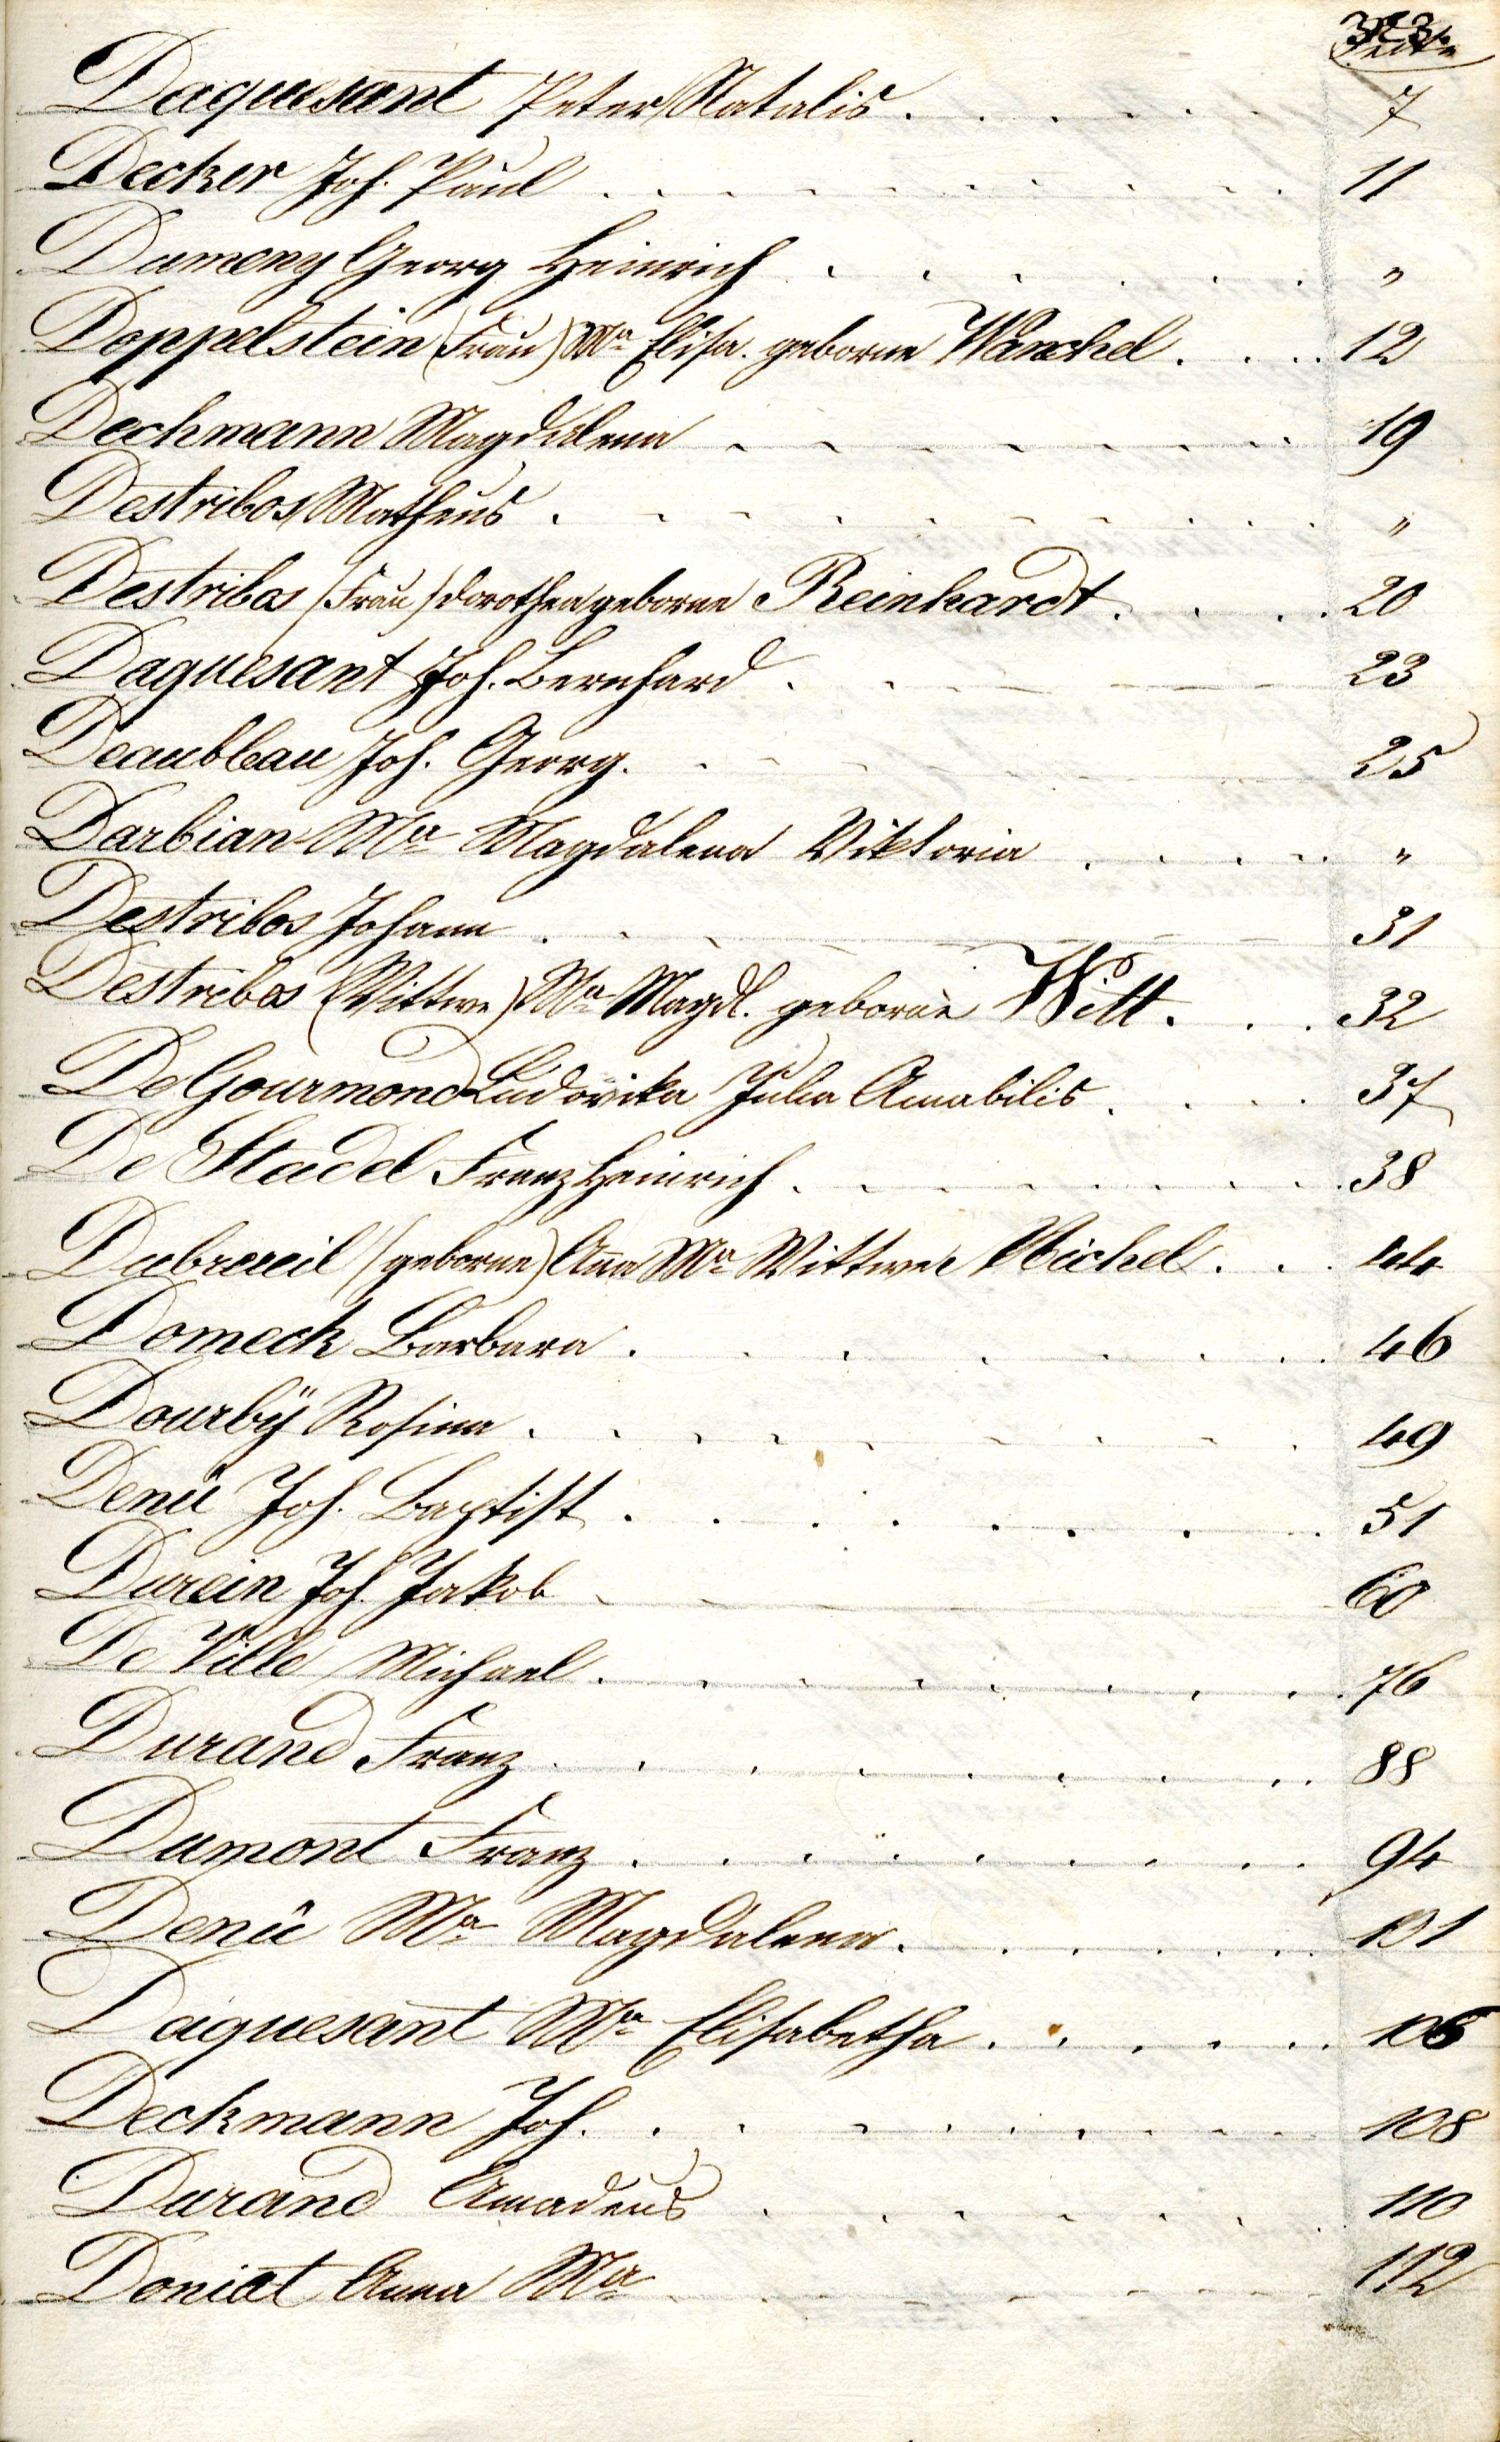 323.
Seite
Daquesant Peter Natalis . . . . . . 7
Decker Joh. Paul . . . . . . . . . 11
Dumeny Georg Heinrich . . . . . . "
Doppelstein (Frau) Ma Elisa. geborne Wanchel . . . 12
Dechmann Magdalena . . . . . . . . 19
Destribos Matheus . . . . . . . . . "
Destribos (Frau) Dorothea geborne Reinhardt . . . 20
Daquesant Joh. Bernhard . . . . . . 23
Deaubleau Joh. Georg. . . . . . . . 25
Darbian Ma Magdalena Viktoria . . . . "
Destribos Johann . . . . . . . . 31
Destribos (Wittwe) Ma Magdl. geborne Witt . . . 32
De Gourmond Ludovika Julia Amabilis . . . . 37
De Stadel Franz Heinrich . . . . . . . . 38
Dubreueil (geborne) Anna Ma Wittwe Michel . . . 44
Domeck Barbara . . . . . . . . 46
Dourbÿ Rosina . . . . . . . . 49
Denü Joh. Baptist . . . . . . . . 51
Durein Joh. Jakob . . . 60
De Ville Michael . . . . . . . . 76
Durand Franz . . . . . . . . 88
Dumont Franz . . . . . . . . 94
Denü Ma Magdalena . . . . . . 101
Daquesant Ma Elisabetha . . . . . . 106
Deckmann Joh. . . . . . . . . 108
Durand Amadeus . . . . . . . 110
Doniat Anna Ma . . . . . . 112